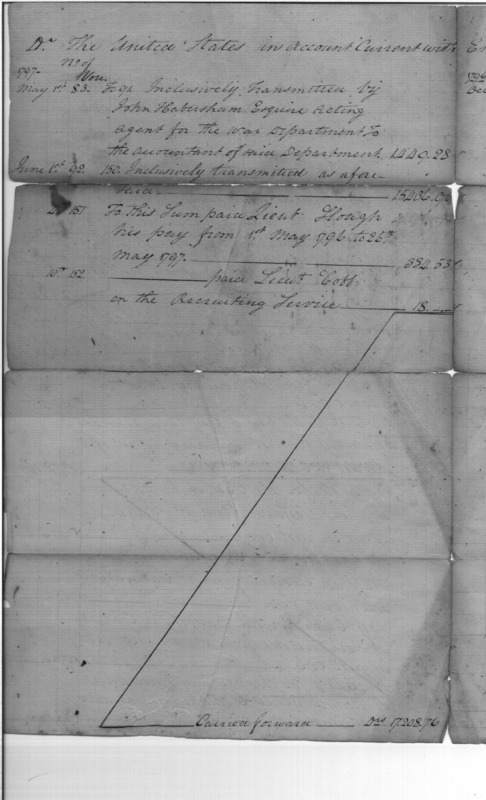 Dr. The United States in Account Current with
1797 No. of
Vou.
May 1st 83. To 91 Inclusively Transmitted by
John Habersham Esquire Acting
Agent for the War Department To
the accountant of said Department 1440.28
June 1st 92. 150. Inclusively transmitted as afore-
said 15406.
151 To this Sum paid Lieut
his pay from 1st May 1796 to 26th
May 1797. 384.53
10th 152 paid Lieut Cobb
on the Recruiting Service 18.
Carried forward Drs. 17208.76